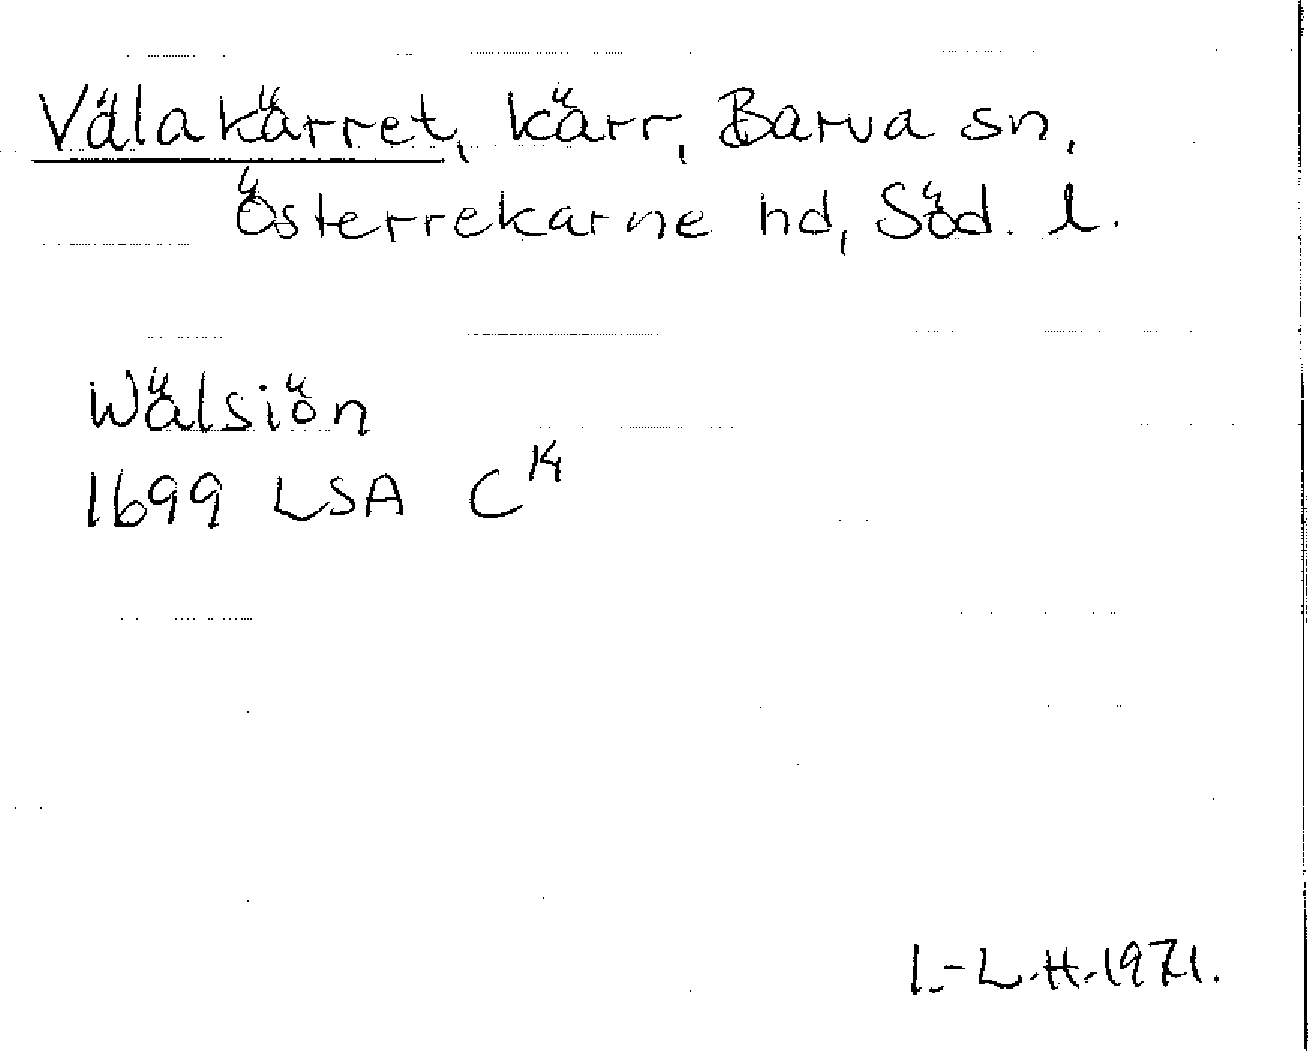 Välakärret, kärr, Barva sn,
Österrekarne hd, Söd. l.
Wälsiön
1699 LSA C^14
I.-L.H.1971.